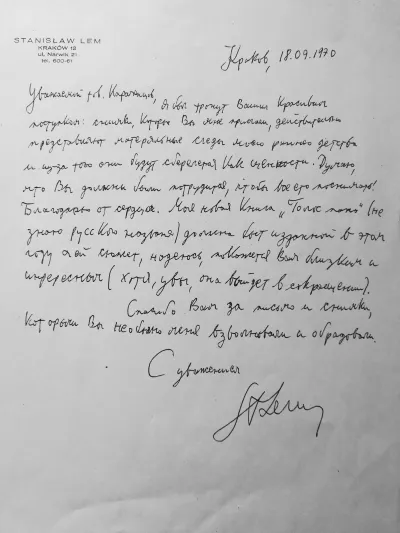 STANISŁAW LEM
KRAKÓW 12
ul. Narvik 21
tel. 600-61
Краков, 18.09.1970
Уважаемый тов.
Я был тронут Вашим красивым
поступком: снимки, которые Вы мне прислали, действительно
представляют материальные следы моего раннего детства
и из-за того они будут сберегатся как ценности. Думаю,
что Вы должны были потрудится, чтобы все это поснимать!
Благодарю от сердца. Моя новая книга „Голос пана” (не
знаю русского названя) должна быт изданной в этом
году и ей сюжет, надеюсь, покажется Вам близким и
интересным (хотя, увы, она выйдет в сокращении).
Спасибо Вам за письмо и снимки,
которыми Вы необычно меня взволновали и обрадовали.
С уважением
St Lem